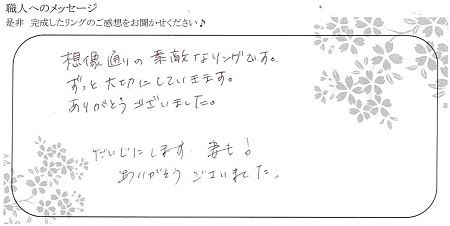 職人へのメッセージ
是非 完成したリングのご感想をお聞かせください♪
想像通りの素敵なリングです。
ずっと大切にしていきます。
ありがとうございました。
だいじにします 妻も!
ありがとうございました。